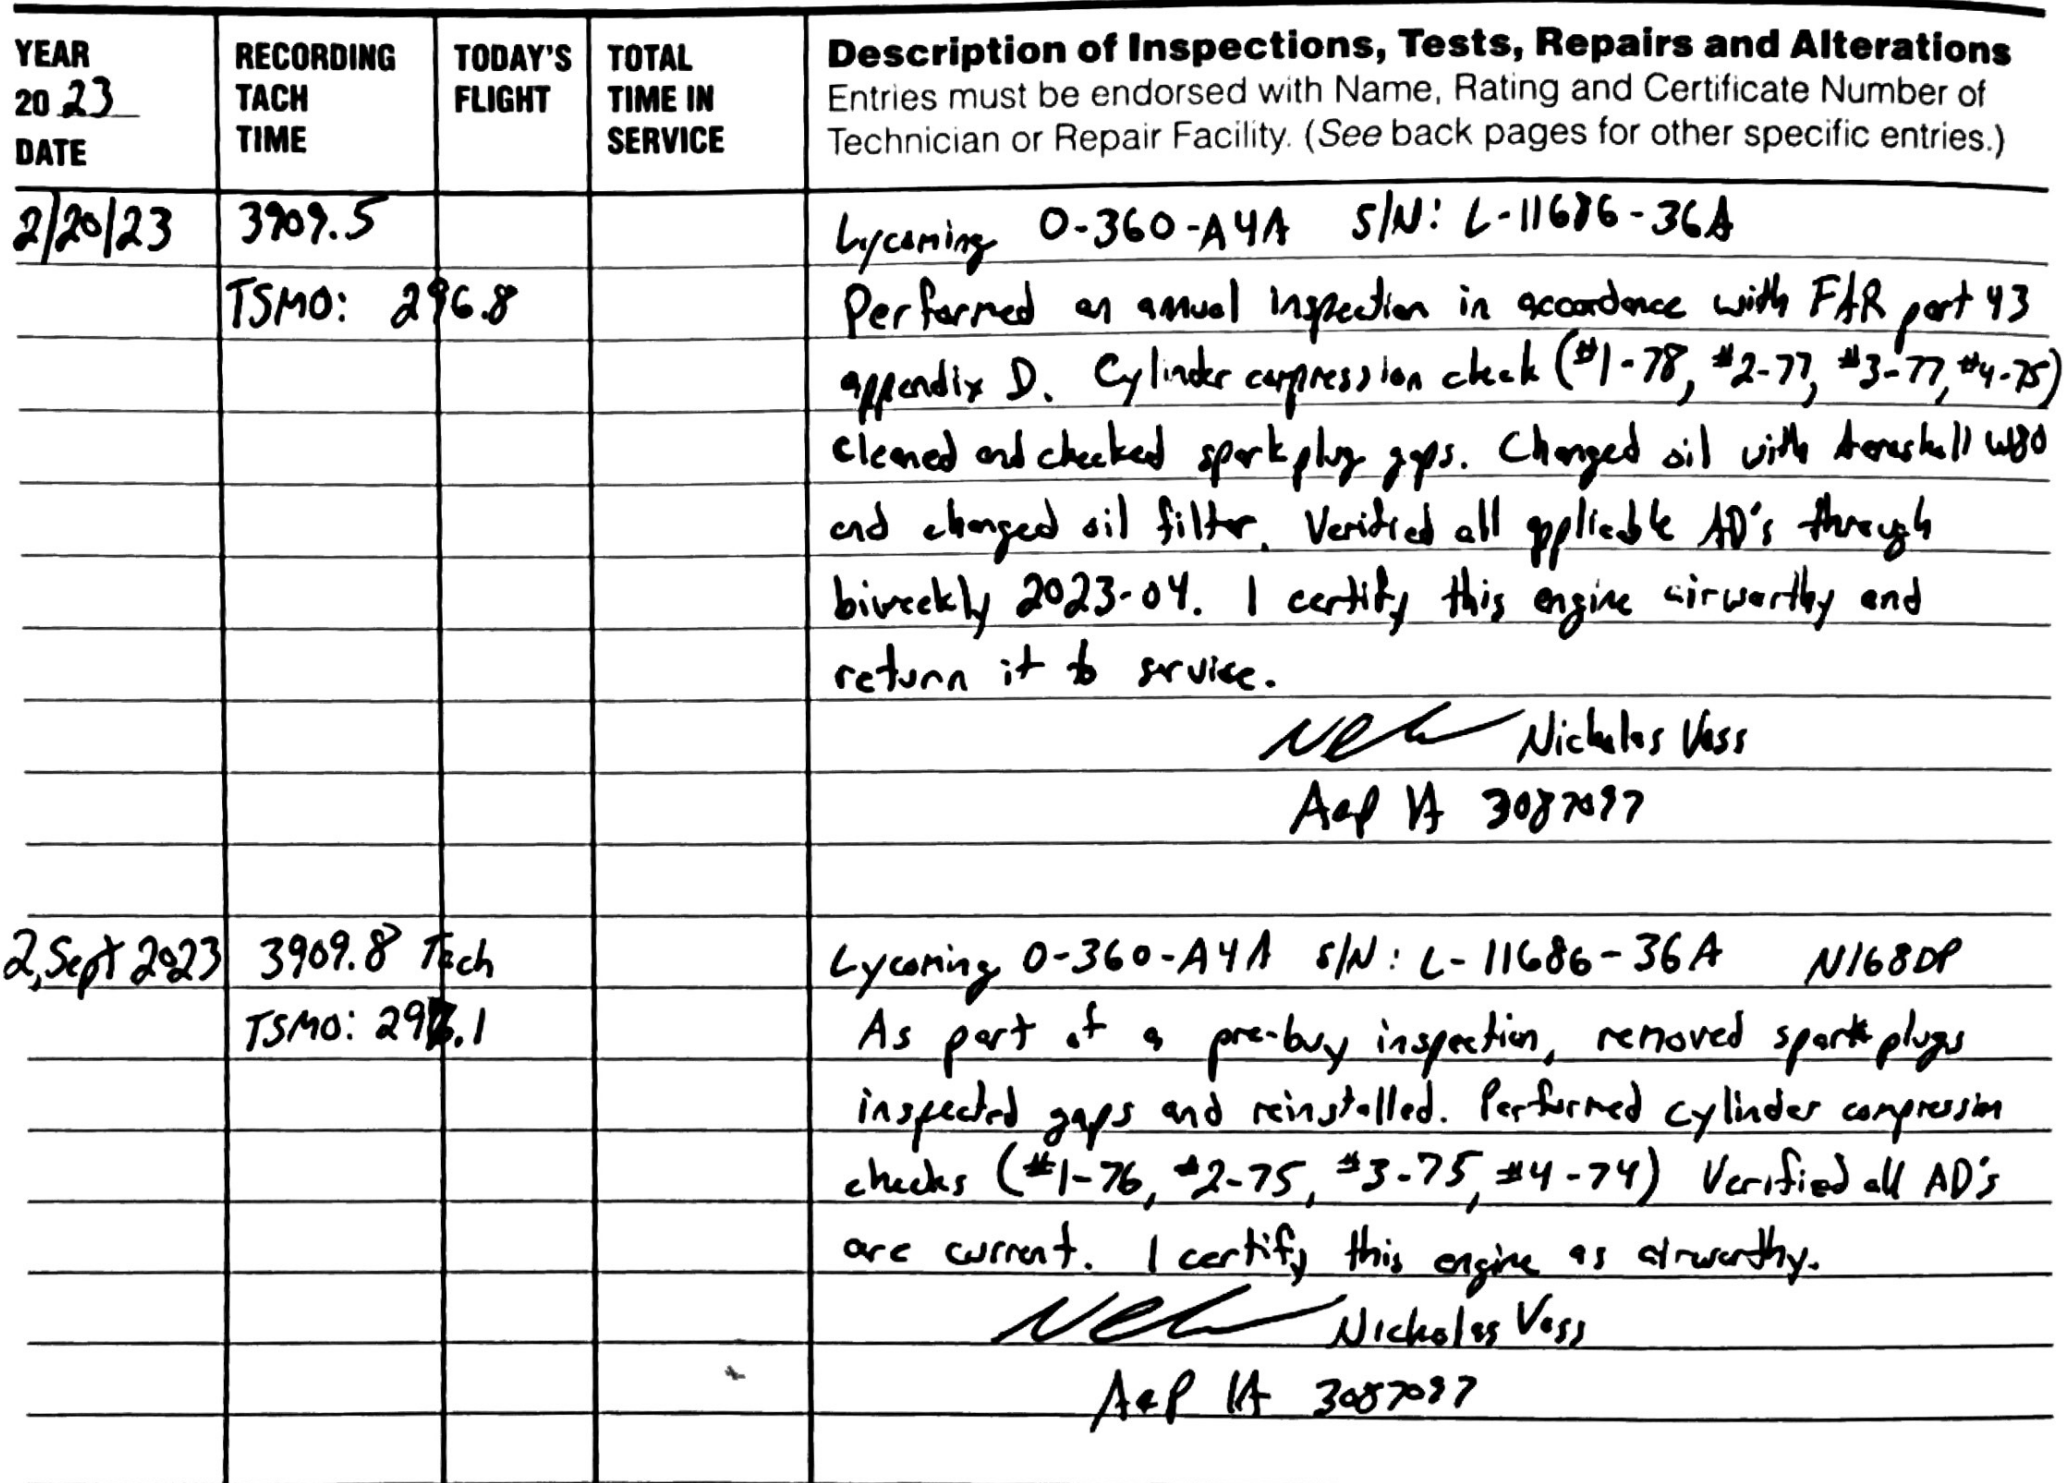 YEAR 2023 DATE
RECORDING TACH TIME
TODAY'S FLIGHT
TOTAL TIME IN SERVICE
Description of Inspections, Tests, Repairs and Alterations
Entries must be endorsed with Name, Rating and Certificate Number of
Technician or Repair Facility. (See back pages for other specific entries.)
2/20/23 3909.5 Lycoming O-360-A4A S/N: L-11686-36A
TSMO: 296.8 Performed an annual inspection in accordance with FAR part 43
appendix D. Cylinder compression check (#1-78, #2-77, #3-77, #4-75)
cleaned and checked spark plug gaps. Changed oil with Aeroshell W80
and changed oil filter. Verified all applicable AD's through
biweekly 2023-04. I certify this engine airworthy and
return it to service.
Nicholas Voss
A&P IA 3087097
2, Sept 2023 3909.8 Tach Lycoming O-360-A4A S/N: L-11686-36A N168DP
TSMO: 297.1 As part of a pre-buy inspection, removed spark plugs
inspected gaps and reinstalled. Performed cylinder compression
checks (#1-76, #2-75, #3-75, #4-74) Verified all AD's
are current. I certify this engine as airworthy.
Nicholas Voss
A&P IA 3087097